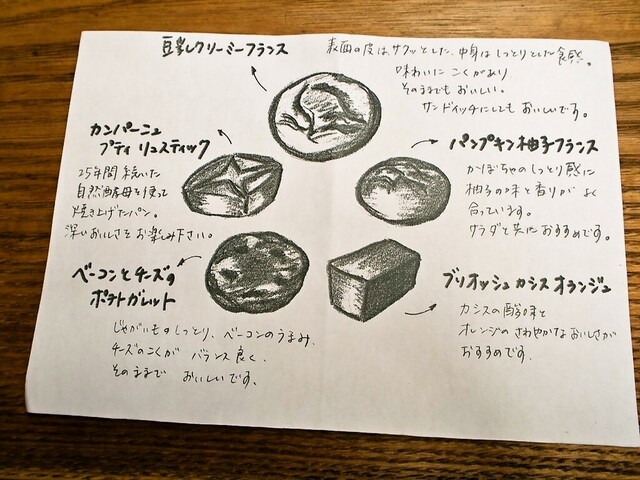 豆乳クリーミーフランス
表面の皮はサクッとした、中身はしっとりとした食感。
味わいにこくがあり
そのままでもおいしい。
サンドイッチにしてもおいしいです。
カンパーニュ
プティ リュスティック
25年間続いた
自然酵母を使って
焼き上げたパン。
深いおいしさをお楽しみ下さい。
パンプキン柚子フランス
かぼちゃのしっとり感に
柚子の味と香りがよく
合っています。
サラダと共におすすめです。
ベーコンとチーズの
ポテトガレット
じゃがいものしっとり、ベーコンのうまみ、
チーズのこくが バランス良く、
そのままで おいしいです。
ブリオッシュ カシス オランジュ
カシスの酸味と
オレンジのさわやかなおいしさが
おすすめです。